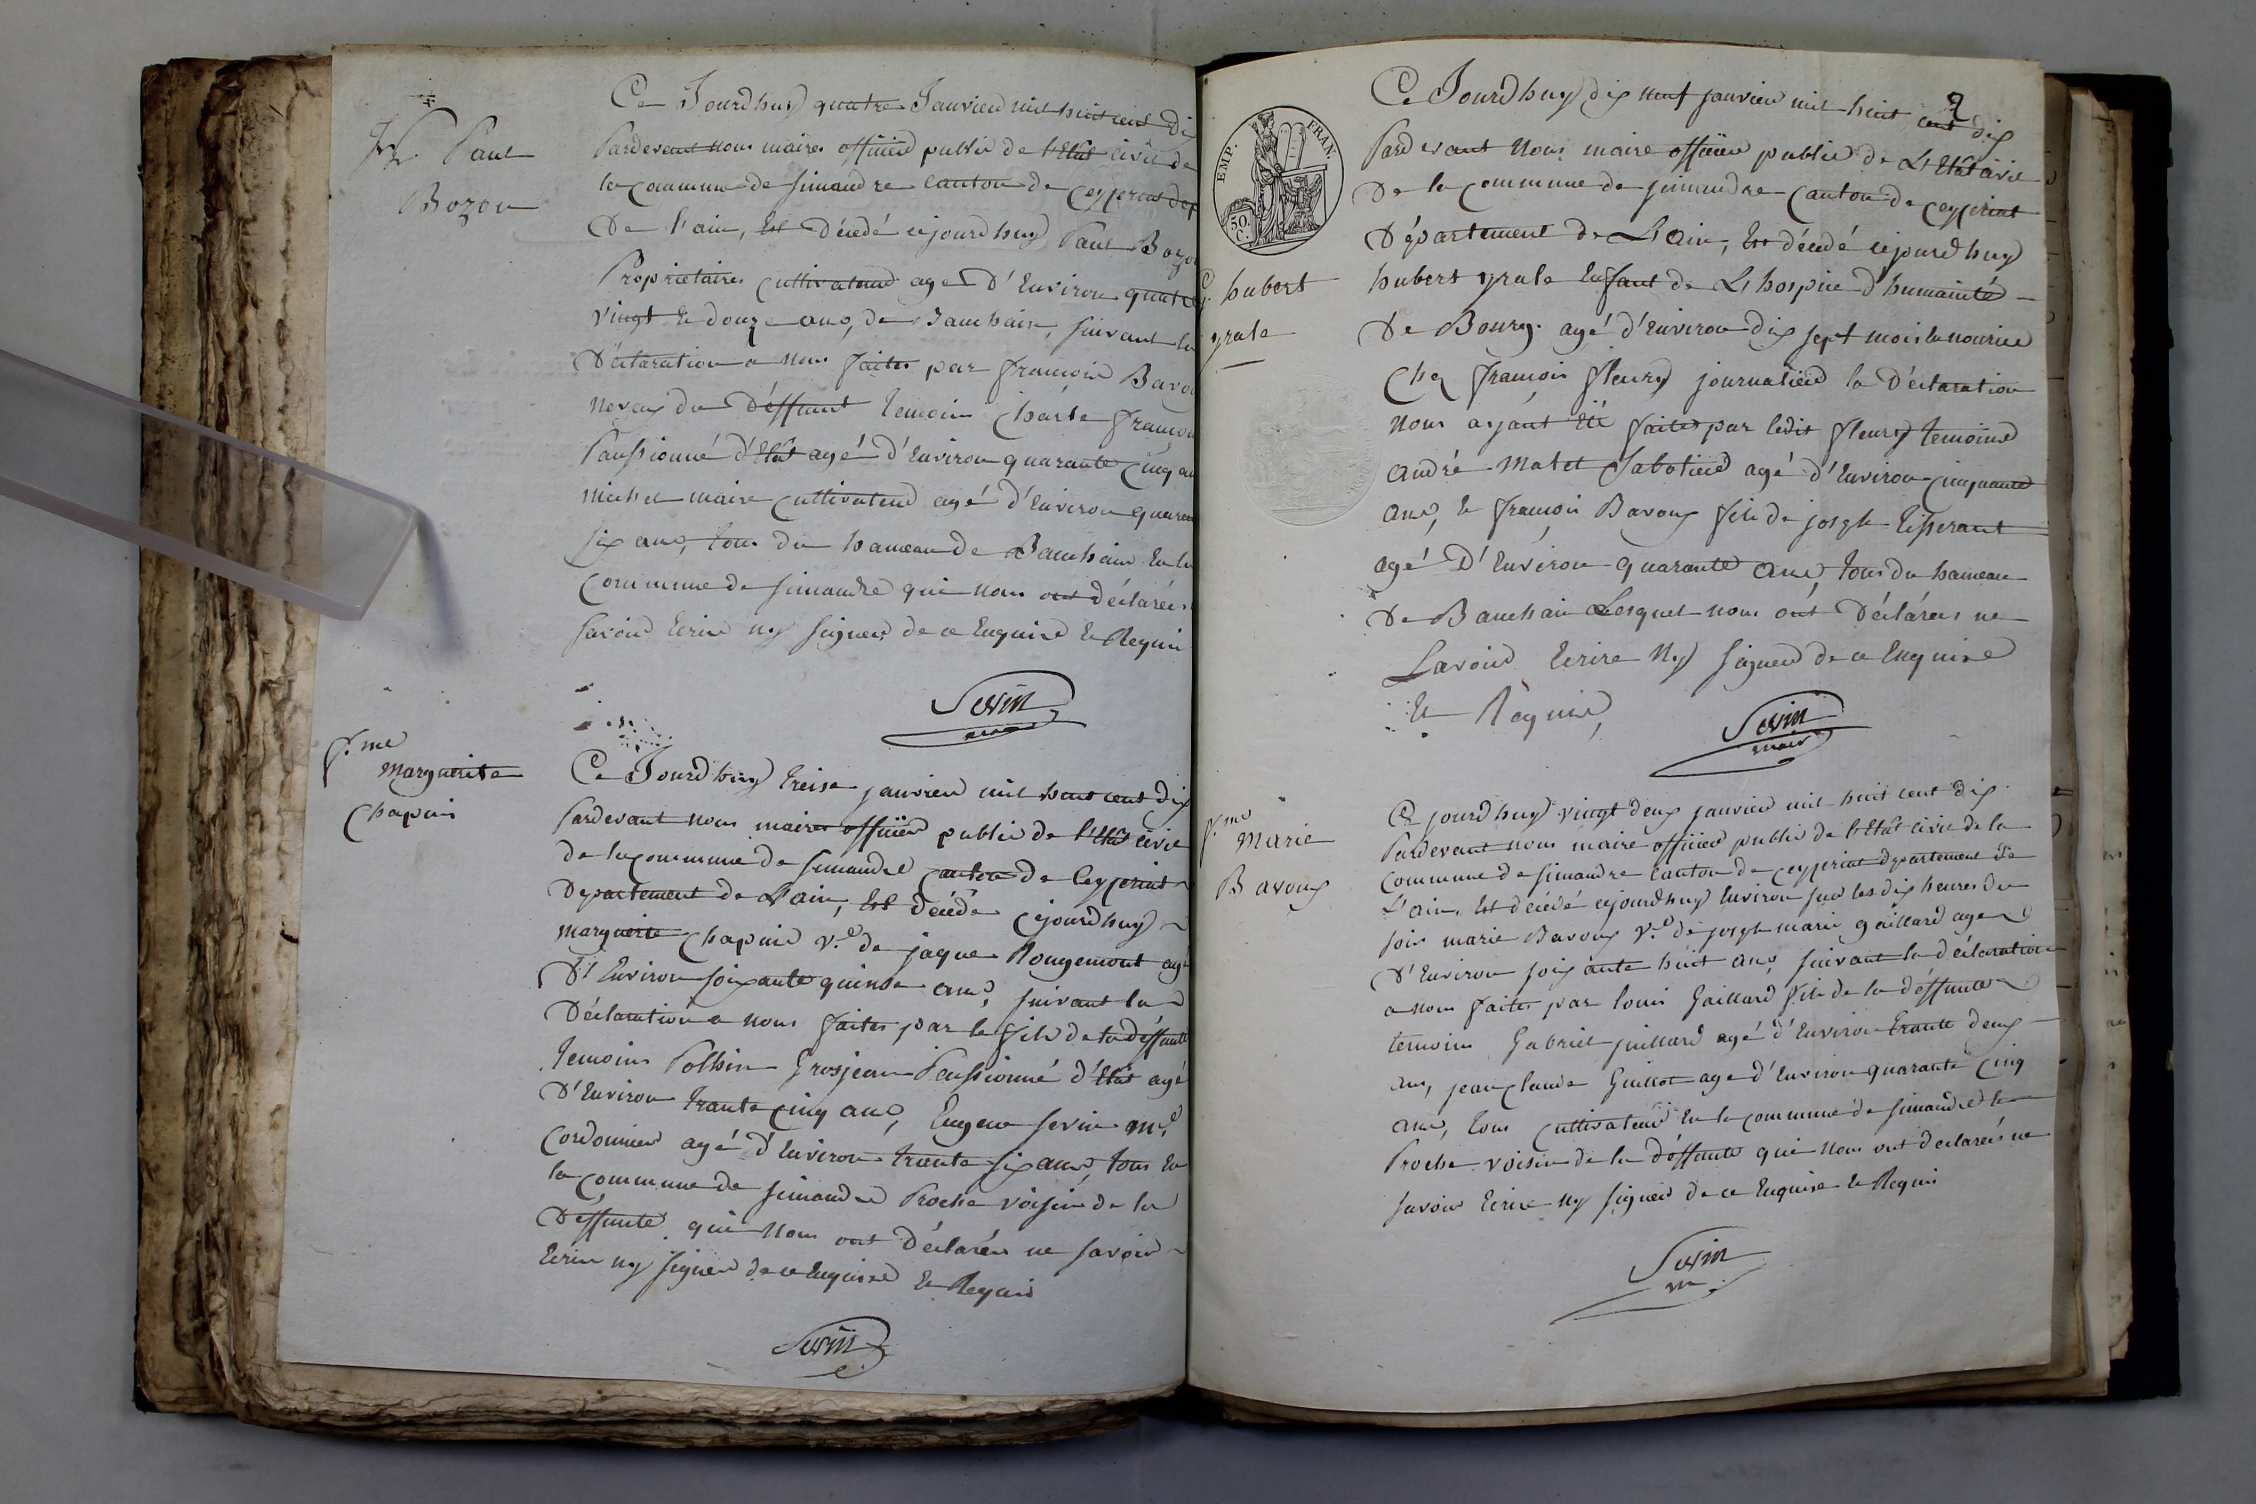 Paul
Bozon
Ce Jourdhuy quatre Janvier mil huit cent di
Pardevant nous maire officier public de l'Etat civil de
la commune de Simandre canton de Ceyzeriat dep
De l'ain, Est Décédé cejourdhuy Paul Bozo
Propriétaire cultivateur agé D'Environ quatre
vingt et douze ans, de Banchain, suivant la
Déclaration a nous faites par françois Bavou
neveux du Déffunt Temoins Charle françois
Panssionné d'Etat agé d'Environ quarante cinq an
michel maire cultivateur agé d'Environ quaran
six ans, tous du hameau de Banchain En la
Commune de Simandre qui nous ont déclarées
savoir Ecrire ny signer de ce Enquire et Requi
Sevin
f.me
Marguerite
Chapuis
Ce Jourdhuy treise janvier mil huit cent dix
Pardevant nous maire officier public de l'Etat civil
de la commune de Simandre canton de Ceyzeriat
Departement de L'ain, Est décédé cejourdhuy
marguerite Chapuis v.e de jaque Rougemont agé
D'Environ soixante quinse ans, suivant la
Déclaration a nous faites par le fils de la déffunte
Temoins Pothin Grosjean Panssionné d'Etat agé
D'Environ trante cinq ans, Eugene Sevin m.e
Cordonnier agé d'Environ trante six ans, tous En
la commune de Simandre Proche voisin de la
Déffunte qui nous ont déclarées ne savoir
Ecrire ny signer de ce Enquire et Requis
Sevin
2
EMP. FRAN.
50 C.
hubert
yrale
Ce Jourdhuy dix neuf janvier mil huit cent dix
Pardevant Nous maire officier public de L'Etat civil
De la Commune de Simandre Canton de Ceyzeriat
Département de L'Ain, Est décédé cejourdhuy
hubert yrale Enfant de L'hospice d'humainité
De Bourg. agé d'Environ dix sept mois la nourice
Chez françois fleury journalier la Déclaration
nous ayant Eté faites par ledit fleury temoins
André Matet Sabotier agé d'Environ Cinquante
Ans, et françois Bavoux fils de josph tisserant
agé D'Environ quarante ans, tous du hameau
De Banchain Lesquel nous ont Déclarées ne
Savoir Ecrire Ny signer de ce Enquire
Et Réquire,
Sevin
maire
f.me
Marie
Bavoux
Ce jourdhuy vingt deux janvier mil huit cent dix
Pardevant nous maire officier public de l'Etat civil de la
Commune de Simandre canton de Ceyzeriat département De
L'ain, Est décédé cejourdhuy Environ sur les dix heures du
soir marie Bavoux v.e de josph marie gaillard agee
D'Environ soixante huit ans, suivant la déclaration
a nous faites par louis Gaillard fils de la déffunte
temoins Gabriel juillard agé d'Environ trante deux
ans, jean Claude Guillot age d'Environ quarante cinq
ans, tous cultivateur En la commune de Simandre et
Proche voisin de la déffunte qui nous ont déclarées ne
savoir Ecrire ny signer de ce Enquire et Requis
Sevin